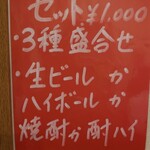 セット¥1,000
・3種盛合せ
・生ビール か
ハイボール か
焼酎か酎ハイ